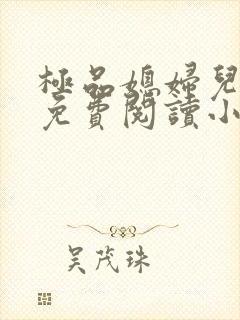 極品媳婦兒
免費閱讀小
吴茂珠